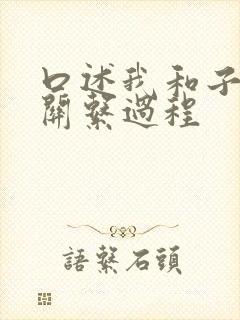 口述我和子
關繫過程
語繫石頭